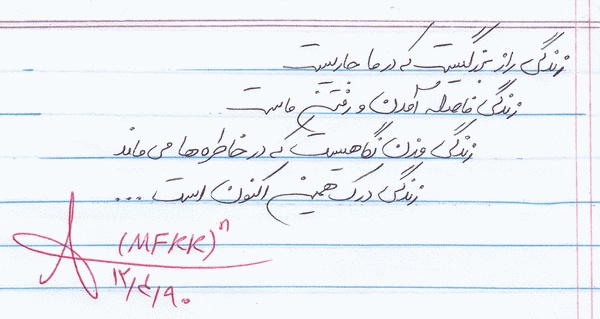 زندگی راز بزرگیست که در ما جاریست
زندگی فاصله آمدن و رفتن ماست
زندگی وزن نگاهیست که در خاطره ها می ماند
زندگی درک همین اکنون است ...
(MFKK)^n
۱۲/۴/۹۰